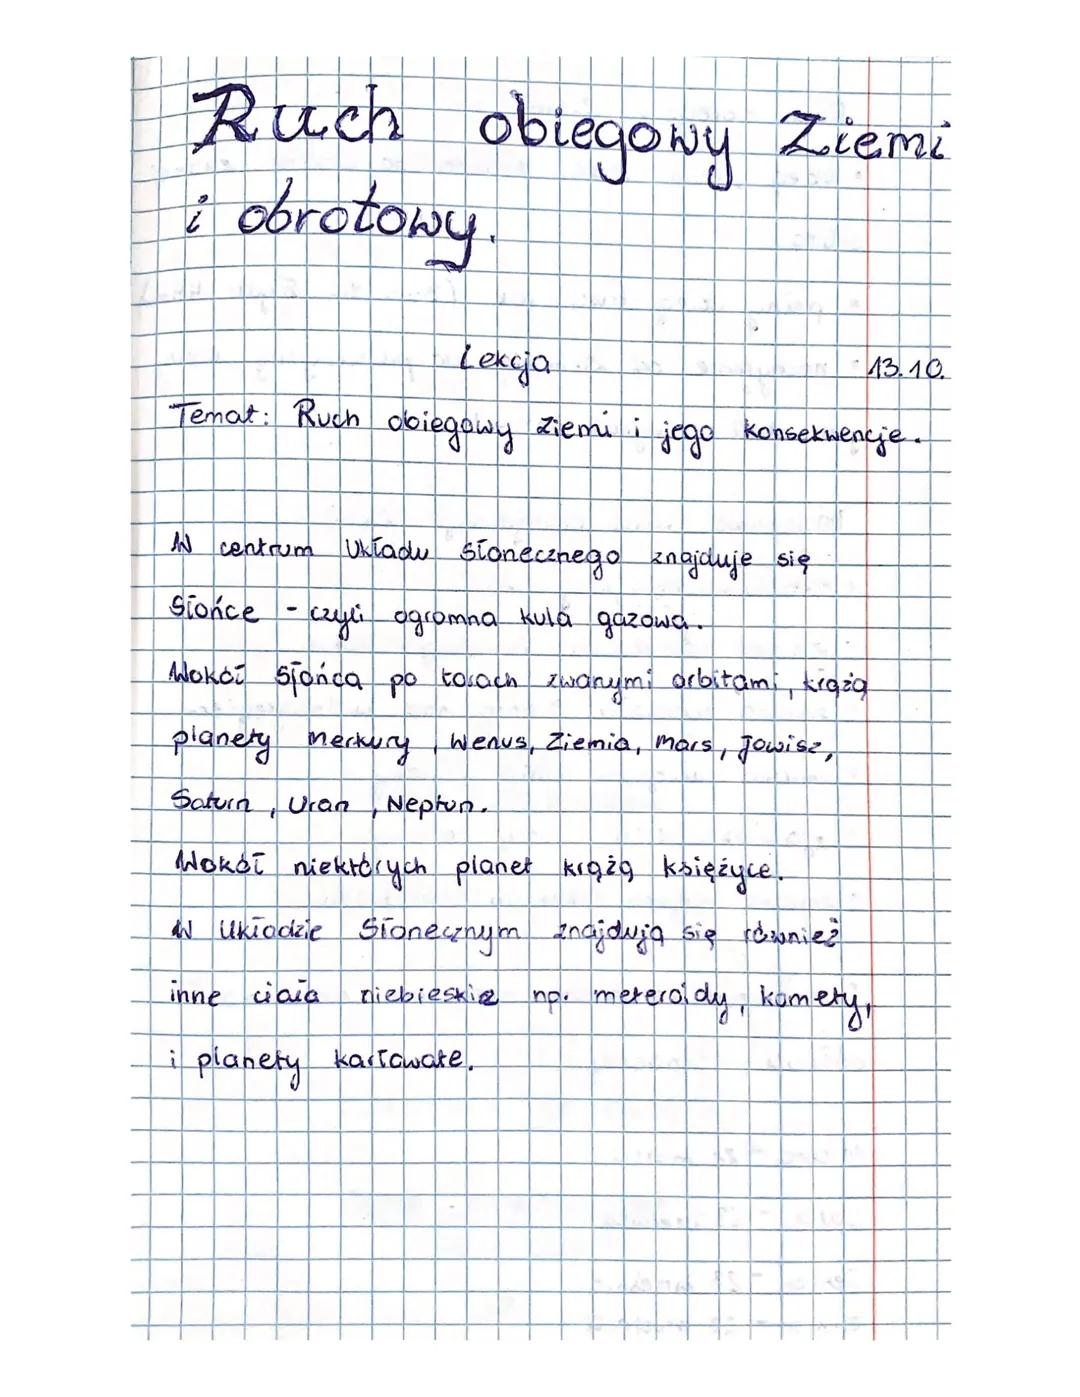 Ruch obiegowy Ziemi
i obrotowy.
Lekcja 13.10.
Temat: Ruch obiegowy Ziemi i jego konsekwencje.
W centrum Układu Słonecznego znajduje się
Słońce - czyli ogromna kula gazowa.
Wokół Słońca po torach zwanymi orbitami, krążą
planety Merkury, Wenus, Ziemia, Mars, Jowisz,
Saturn, Uran, Neptun.
Wokół niektórych planet krążą księżyce.
W Układzie Słonecznym znajdują się również
inne ciała niebieskie np. meteroidy, komety,
i planety karłowate.